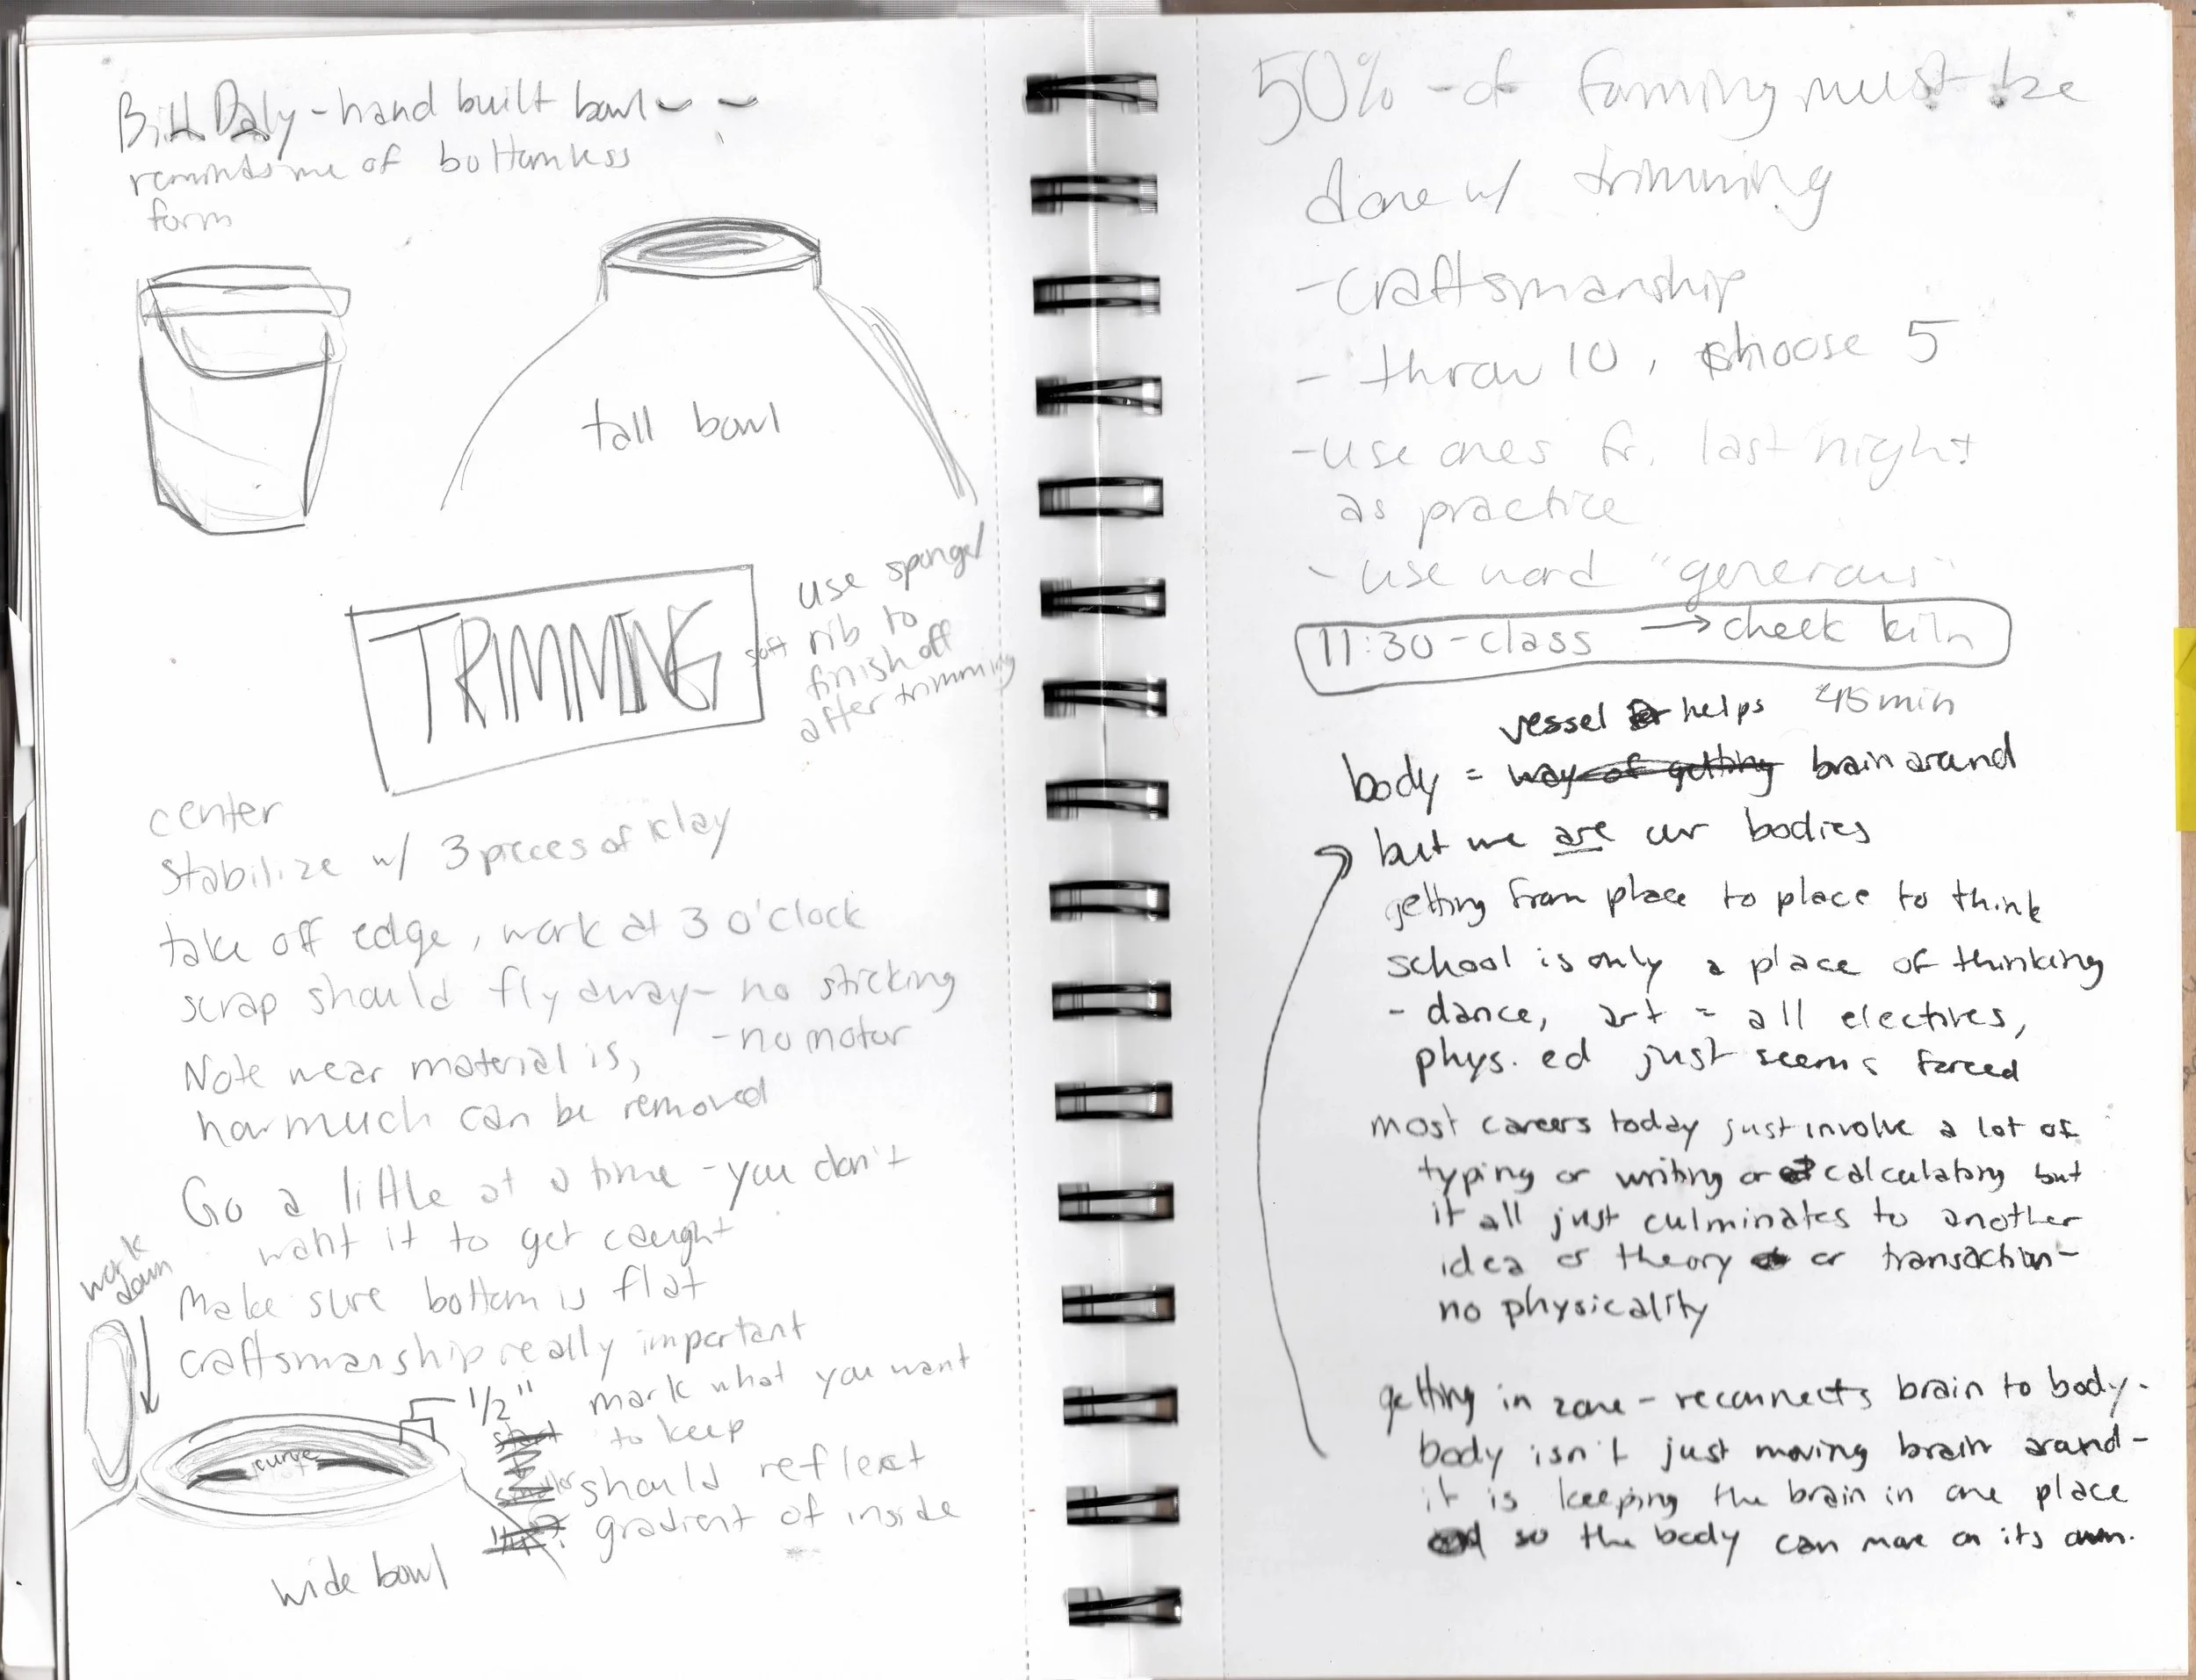 Bill Daly - hand built bowl
reminds me of bottomless
form
tall bowl
TRIMMING
use sponge/
soft rib to
finish off
after trimming
center
stabilize w/ 3 pieces of clay
take off edge, work at 3 o'clock
scrap should fly away - no sticking
- no motor
Note wear material is,
how much can be removed
Go a little at a time - you don't
want it to get caught
work
down
Make sure bottom is flat
craftsmanship really important
1/2"
mark what you want
to keep
curve
should reflect
gradient of inside
wide bowl
50% - of forming must be
done w/ trimming
- craftsmanship
- throw 10, choose 5
- use ones fr. last night
as practice
- use word "generous"
11:30 - class → check kiln
45 min
vessel helps
body = way of getting brain around
but we are our bodies
getting from place to place to think
school is only a place of thinking
- dance, art = all electives,
phys. ed just seems forced
most careers today just involve a lot of
typing or writing or calculating but
it all just culminates to another
idea or theory or transaction -
no physicality
getting in zone - reconnects brain to body.
body isn't just moving brain around -
it is keeping the brain in one place
so the body can move on its own.